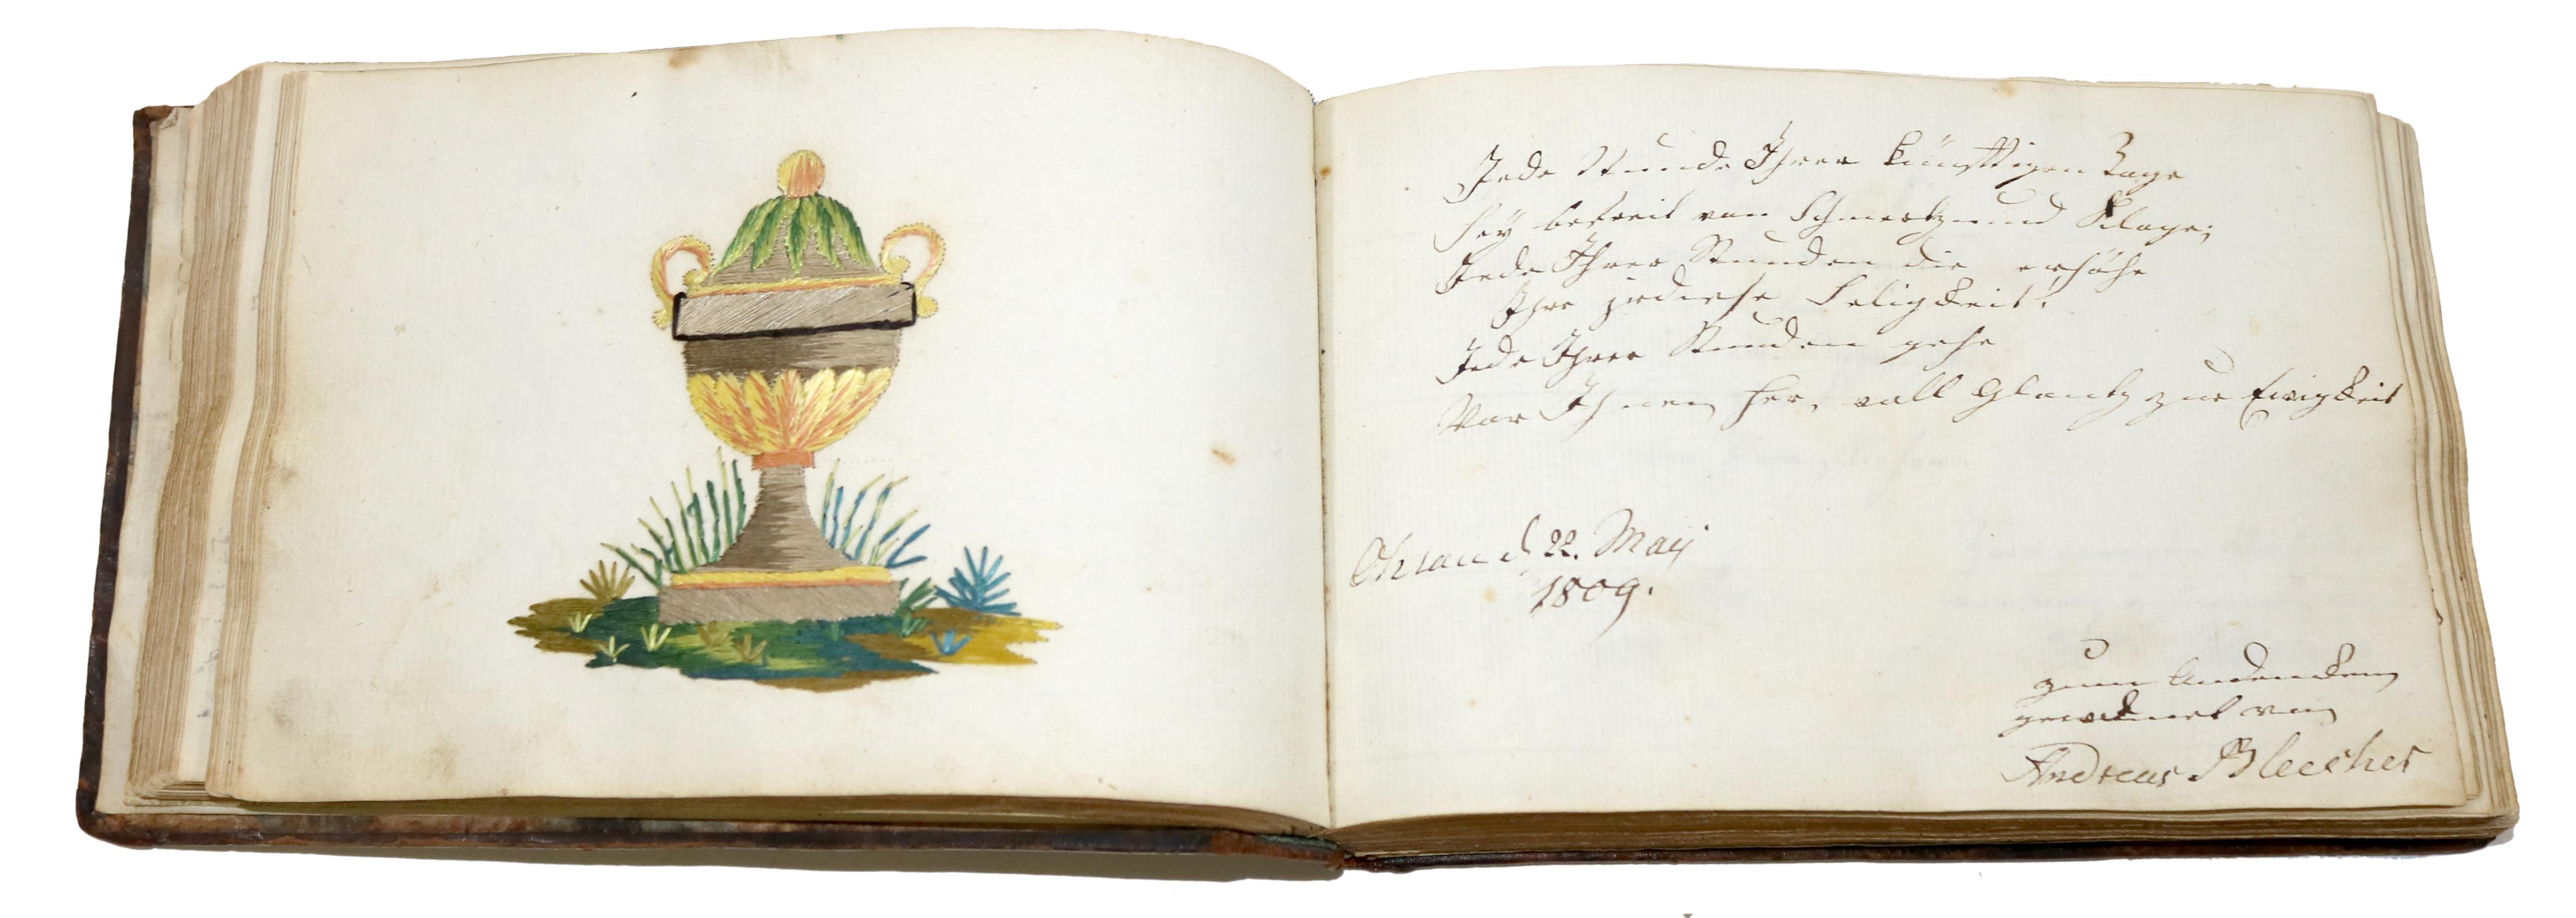 Jede Stunde Ihrer künfftigen Tage
sey befreit von Schmertz und Klage;
Jede Ihrer Stunden die erhöhe
Ihre jrdische Seligkeit.
Jede Ihrer Stunden gehe
Vor Ihnen her, voll Glantz zur Ewigkeit
Ohlau d 22. May
1809.
zum Andencken
gewidmet von
Andreas Bleecher